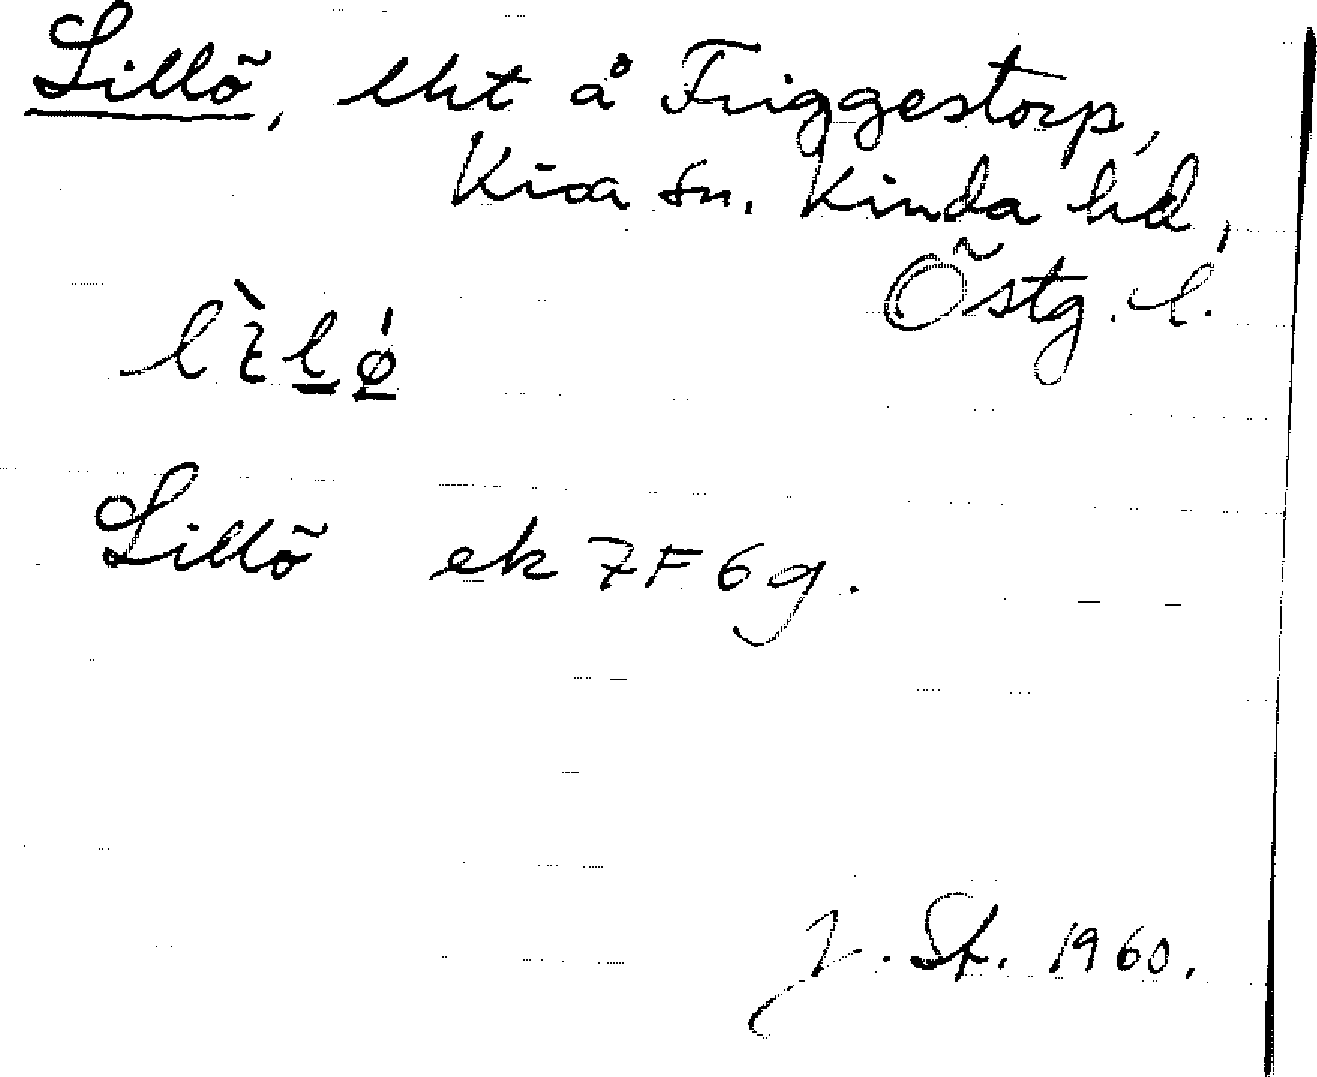 Lillö, lht å Friggestorp,
Kisa sn. Kinda hd,
Östg. l.
Lillö ek 7F6g.
J. St. 1960.